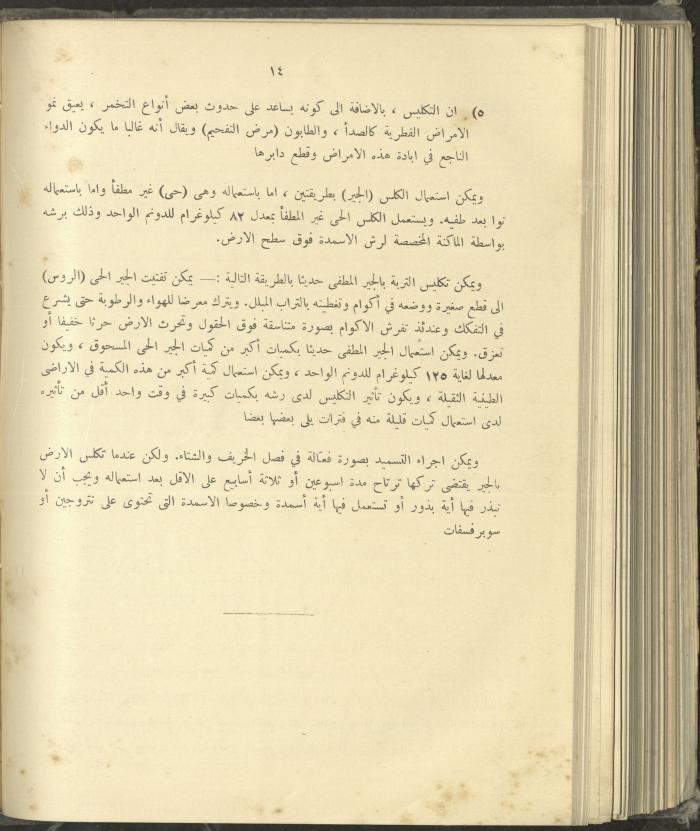 ١٤
٥) ان التكليس ، بالاضافة الى كونه يساعد على حدوث بعض أنواع التخمر ، يعيق نمو
الامراض الفطرية كالصدأ ، والطابون (مرض التفحيم) ويقال أنه غالبا ما يكون الدواء
الناجع في ابادة هذه الامراض وقطع دابرها
ويمكن استعمال الكلس (الجير) بطريقتين ، اما باستعماله وهى (حى) غير مطفأ واما باستعماله
توا بعد طفيه. ويستعمل الكلس الحى غير المطفأ بمعدل ٨٢ كيلوغرام للدونم الواحد وذلك برشه
بواسطة الماكنة المخصصة لرش الاسمدة فوق سطح الارض.
ويمكن تكليس التربة بالجير المطفى حديثا بالطريقة التالية :— يمكن تفتيت الجير الحى (الروس)
الى قطع صغيرة ووضعه في أكوام وتغطيته بالتراب المبلل. ويترك معرضا للهواء والرطوبة حتى يشرع
في التفكك وعندئذ تفرش الاكوام بصورة متناسقة فوق الحقول وتحرث الارض حرثا خفيفا أو
تعزق. ويمكن استعمال الجير المطفى حديثا بكميات أكبر من كميات الجير الحى المسحوق ، ويكون
معدلها لغاية ١٢٥ كيلوغرام للدونم الواحد ، ويمكن استعمال كمية أكبر من هذه الكمية في الاراضى
الطينية الثقيلة ، ويكون تأثير التكليس لدى رشه بكميات كبيرة في وقت واحد أقل من تأثيره
لدى استعمال كميات قليلة منه في فترات يلى بعضها بعضا
ويمكن اجراء التسميد بصورة فعالة في فصل الخريف والشتاء. ولكن عندما تكلس الارض
بالجير يقتضى تركها ترتاح مدة اسبوعين أو ثلاثة أسابيع على الاقل بعد استعماله ويجب أن لا
تبذر فيها أية بذور أو تستعمل فيها أية أسمدة وخصوصا الاسمدة التى تحتوى على نتروجين أو
سوبرفسفات